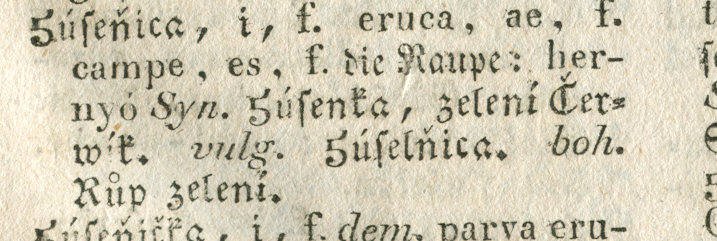 Húseňica, i, f. eruca, ae, f.
campe, es, f. die Raupe: her-
nyó Syn. Húsenka, zelení Čer-
wík. vulg. Húselňica. boh.
Růp zelení.
Húseňička, i, f. dem. parva eru-